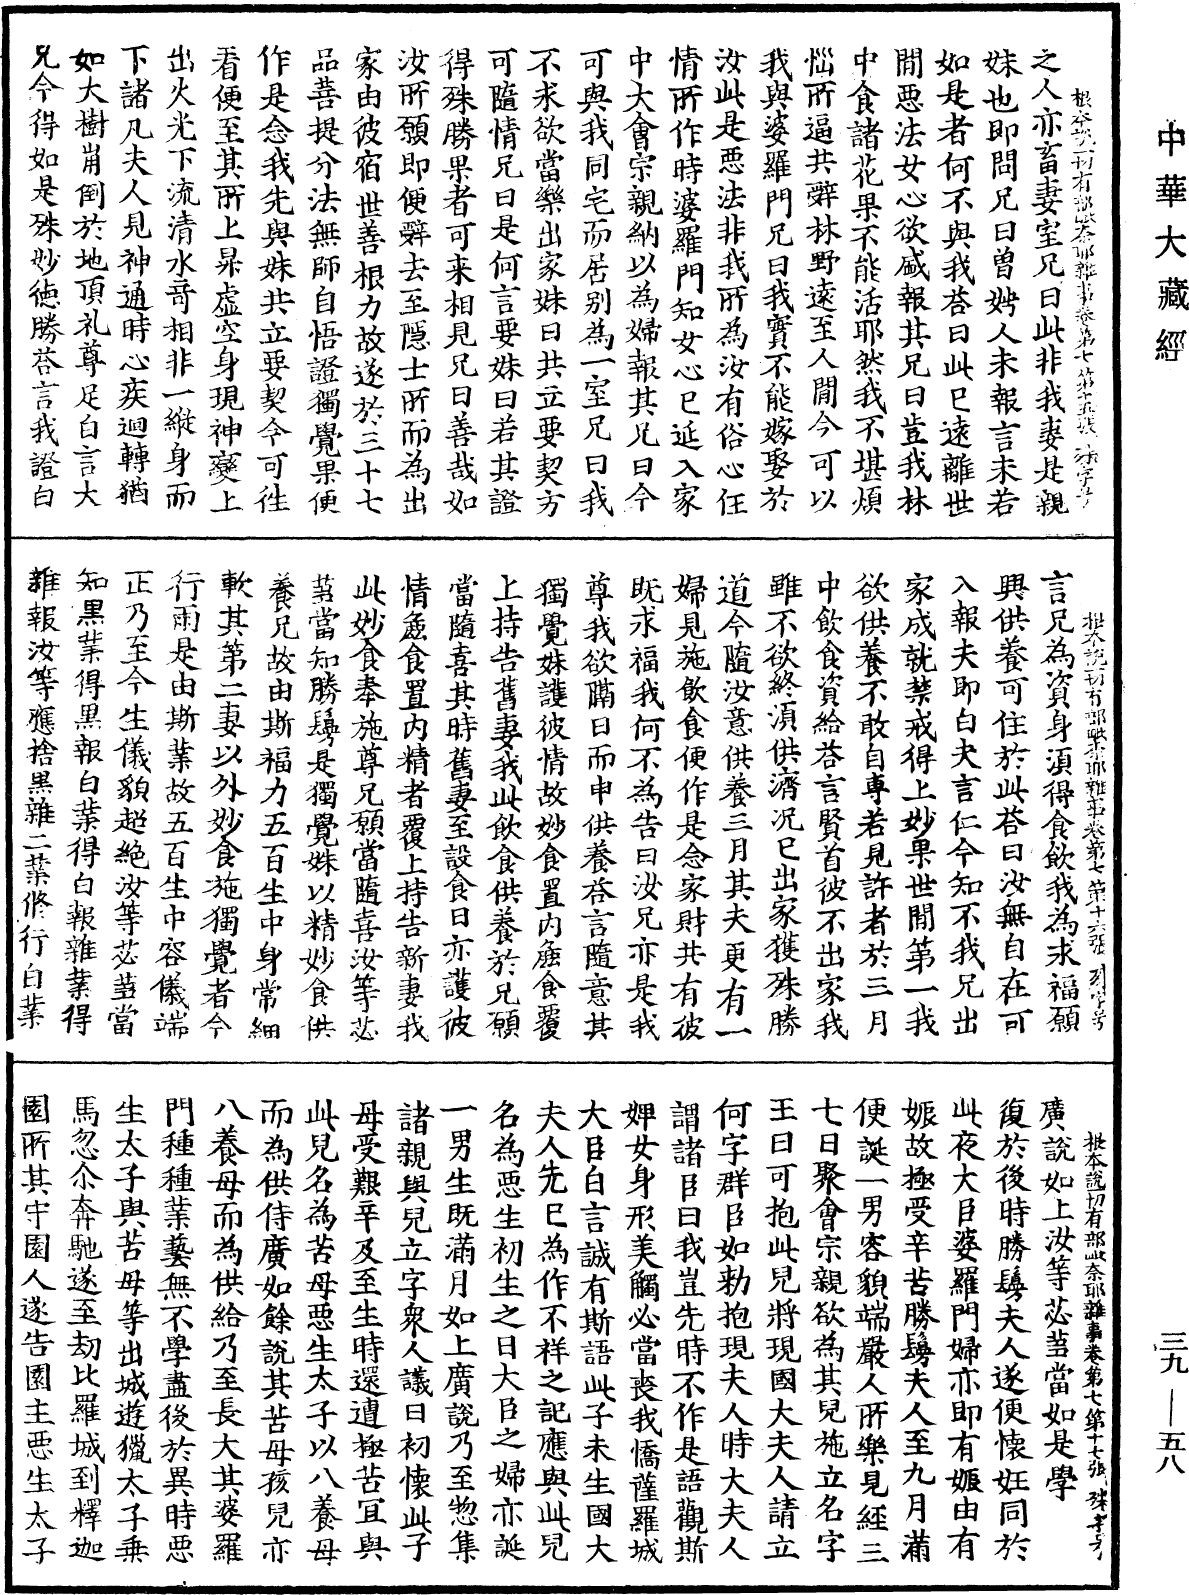 中華大藏經
根本說一切有部毗奈耶雜事卷第七 第十五張
之人亦畜妻室兄曰此非我妻是親
妹也即問兄曰曾娉人未報言未若
如是者何不與我荅曰此已遠離世
間惡法女心欲盛報其兄曰豈我林
中食諸花果不能活耶然我不堪煩
惱所逼共辤林野遠至人間今可以
我與婆羅門兄曰我實不能嫁娶於
汝此是惡法非我所為汝有俗心任
情所作時婆羅門知女心已延入家
中大會宗親納以為婦報其兄曰今
可與我同宅而居別為一室兄曰我
不求欲當樂出家妹曰共立要契方
可隨情兄曰是何言要妹曰若其證
得殊勝果者可来相見兄曰善哉如
汝所願即便辤去至隱士所而為出
家由彼宿世善根力故遂於三十七
品菩提分法無師自悟證獨覺果便
作是念我先與妹共立要契今可往
看便至其所上昇虛空身現神變上
出火光下流清水竒相非一縱身而
下諸凡夫人見神通時心疾迴轉猶
如大樹崩倒於地頂礼尊足白言大
兄今得如是殊妙德勝荅言我證白
根本說一切有部毗奈耶雜事卷第七 第十六張
言兄為資身須得食飲我為求福願
興供養可住於此荅曰汝無自在可
入報夫即白夫言仁今知不我兄出
家成就禁戒得上妙果世間第一我
欲供養不敢自專若見許者於三月
中飲食資給荅言賢首彼不出家我
雖不欲終須供濟況已出家獲殊勝
道今隨汝意供養三月其夫更有一
婦見施飲食便作是念家財共有彼
既求福我何不為告曰汝兄亦是我
尊我欲隔日而申供養荅言隨意其
獨覺妹護彼情故妙食置內麁食覆
上持告舊妻我此飲食供養於兄願
當隨喜其時舊妻至設食日亦護彼
情麁食置內精者覆上持告新妻我
此妙食奉施尊兄願當隨喜汝等苾
芻當知勝鬘是獨覺妹以精妙食供
養兄故由斯福力五百生中身常細
軟其第二妻以外妙食施獨覺者今
行雨是由斯業故五百生中容儀端
正乃至今生儀貌超絕汝等苾芻當
知黑業得黑報白業得白報雜業得
雜報汝等應捨黑雜二業修行白業
根本說一切有部毗奈耶雜事卷第七 第十七張
廣說如上汝等苾芻當如是學
復於後時勝鬘夫人遂便懷妊同於
此夜大臣婆羅門婦亦即有娠由有
娠故極受辛苦勝鬘夫人至九月滿
便誕一男容貌端嚴人所樂見經三
七日聚會宗親欲為其兒施立名字
王曰可抱此兒將現國大夫人請立
何字群臣如勅抱現夫人時大夫人
謂諸臣曰我豈先時不作是語觀斯
婢女身形美觸必當喪我憍薩羅城
大臣白言誠有斯語此子未生國大
夫人先已為作不祥之記應與此兒
名為惡生初生之日大臣之婦亦誕
一男生既滿月如上廣說乃至惣集
諸親與兒立字衆人議曰初懷此子
母受艱辛及至生時還遭極苦宜與
此兒名為苦母惡生太子以八養母
而為供侍廣如餘說其苦母孩兒亦
八養母而為供給乃至長大其婆羅
門種種業藝無不學盡後於異時惡
生太子與苦母等出城遊獵太子乗
馬忽尒奔馳遂至劫比羅城到釋迦
園所其守園人遂告園主惡生太子
三九—五八